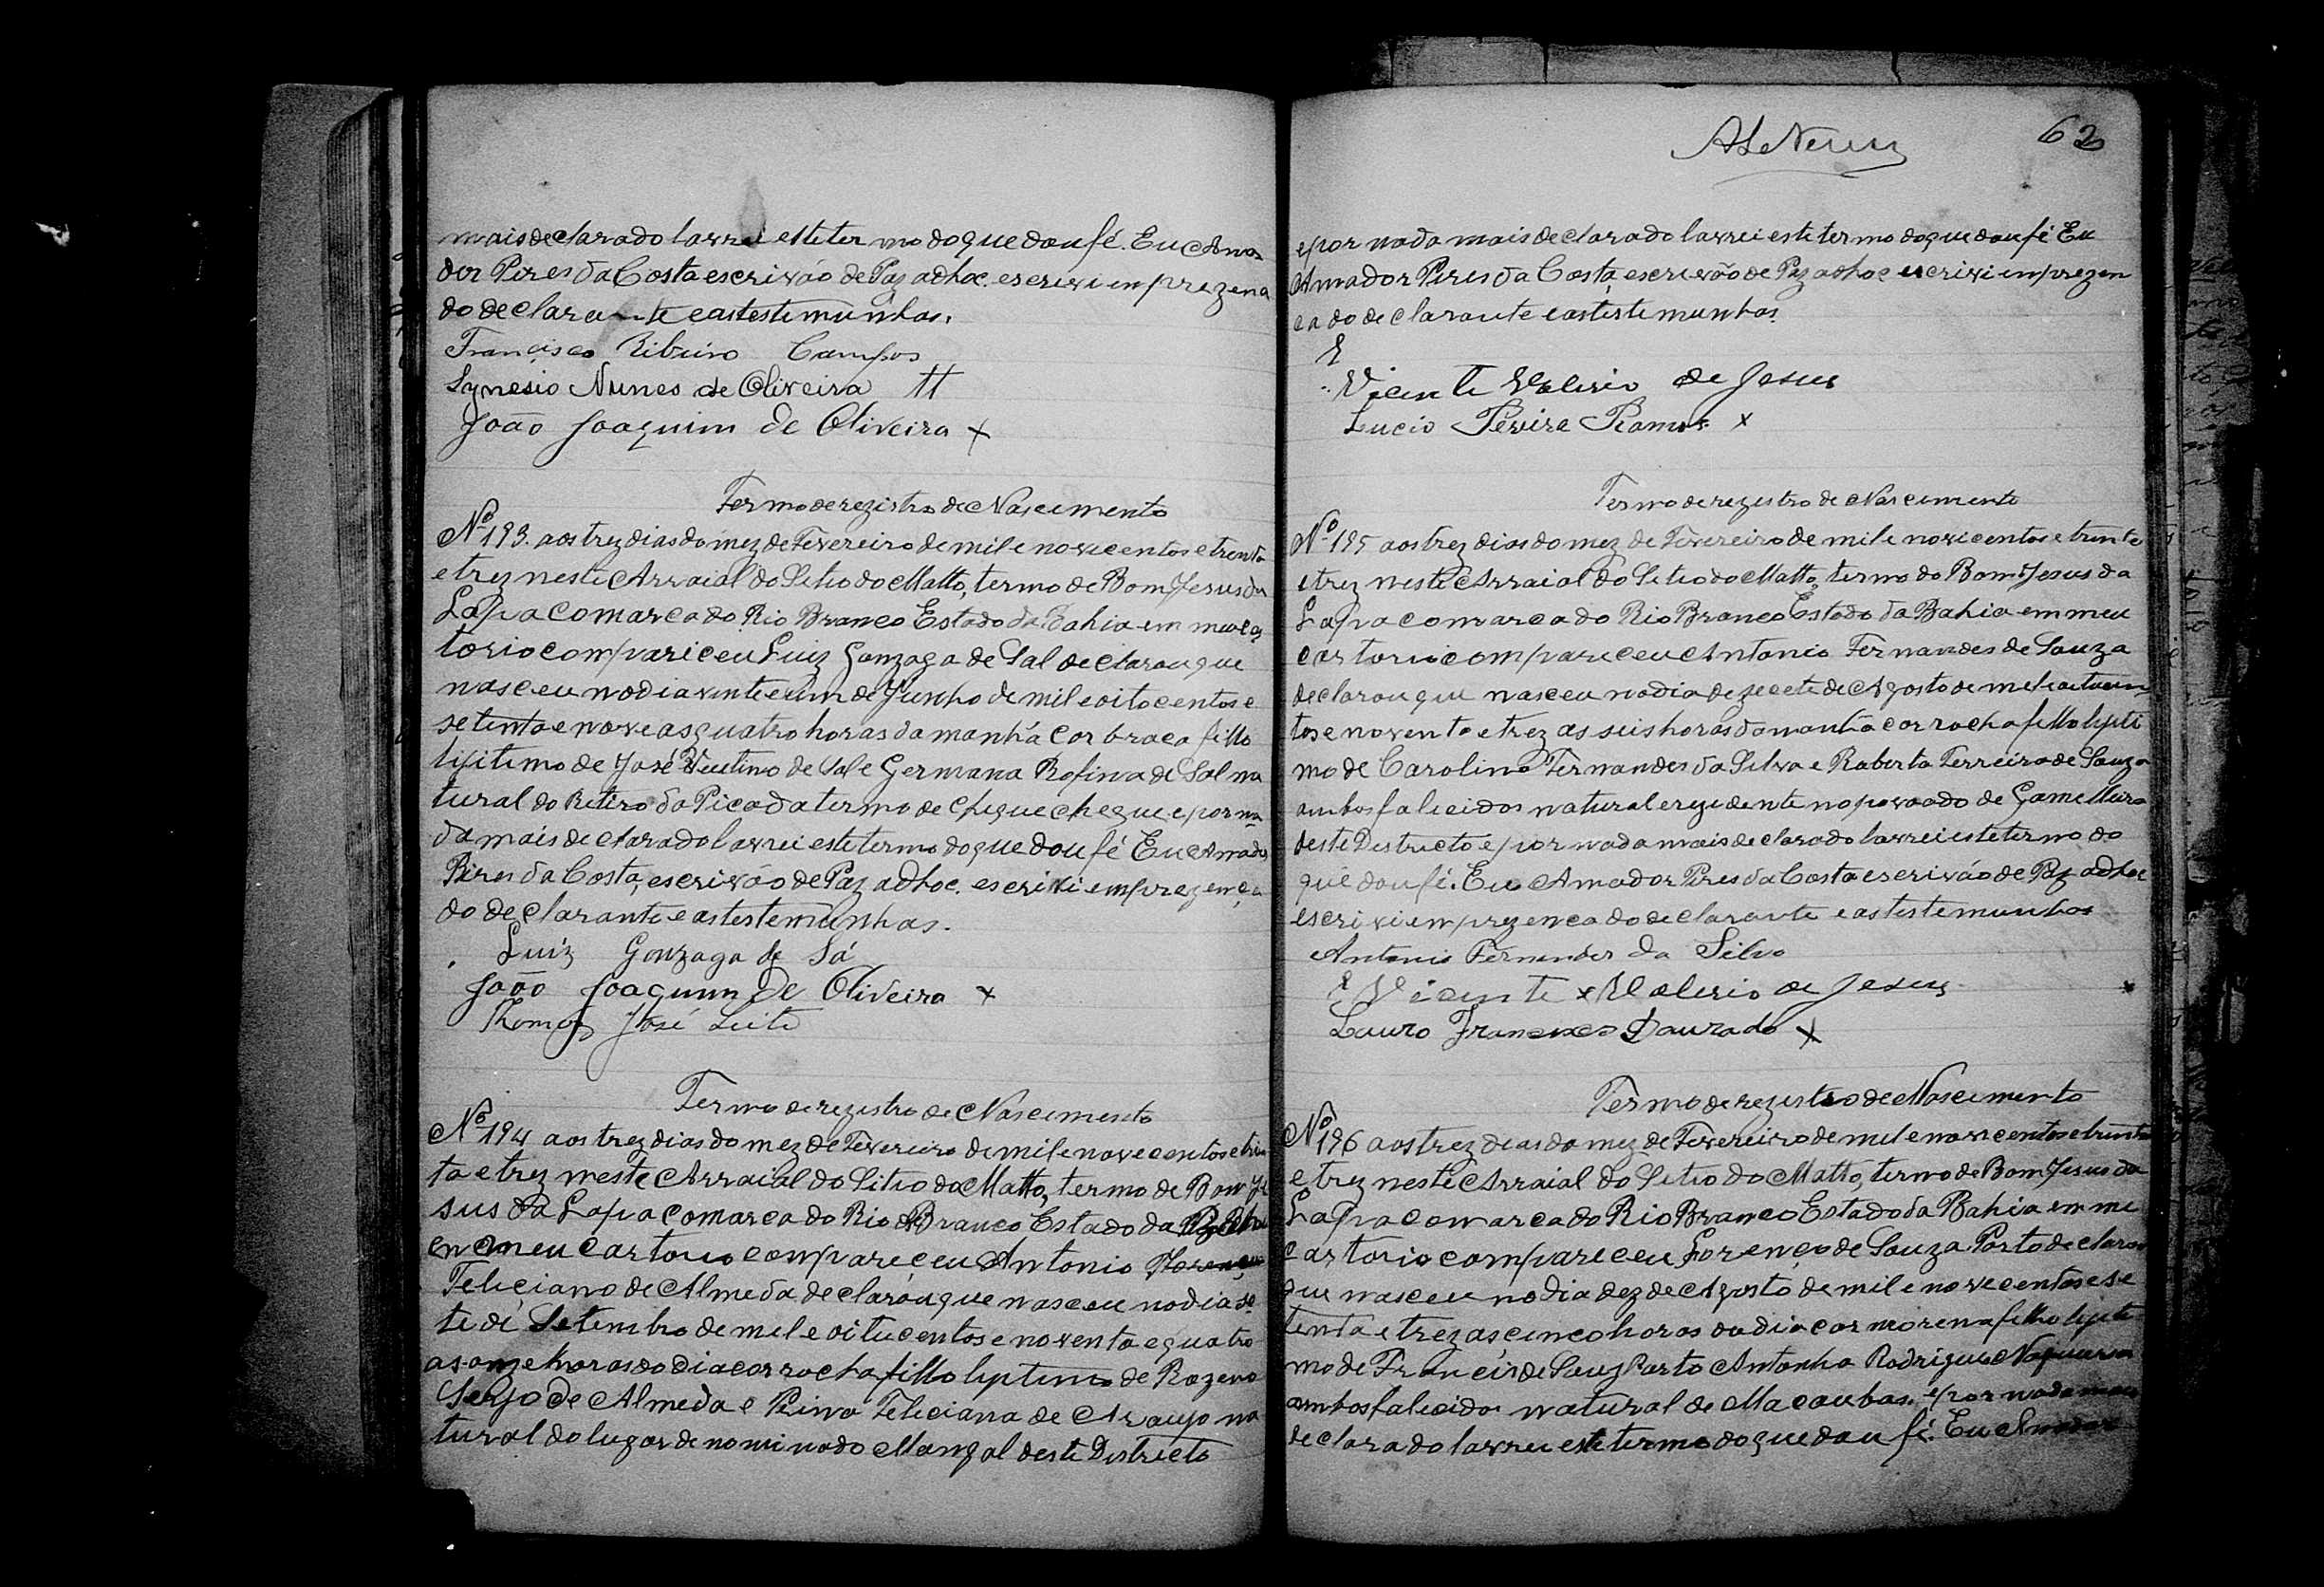 mais declarado lavrei este termo do que dou fé. Eu Ama
dor Pires da Costa escrivão de Paz adhoc. escrevi em prezena
do declarante e as testemunhas.
Francisco Ribeiro Campos
Synesio Nunes de Oliveira
João Joaquim de Oliveira x
Termo de rezistro de Nascimento
Nº 193. aos trez dias do mez de Fevereiro de mil e novecentos e trenta
e trez neste Arraial do Sitio do Matto, termo de Bom Jesus da
Lapa comarca do Rio Branco Estado da Bahia em meu car
torio compariceu Luiz Gonzaga de Sal declarou que
nasceu no dia vinte e um de Junho de mil e oitocentos e
setenta e nove as quatro horas da manhã cor braca filho
lijitimo de José de Sal e Germana Rofina de Sal na
tural do Retiro da Picada termo de Chique Chique e por na
da mais declarado lavrei este termo do que dou fé Eu Amador
Pires da Costa, escrivão de Paz adhoc. escrivi em prezença
do declarante e as testemunhas.
Luiz Gonzaga de Sá
João Joaquim de Oliveira x
Thomaz José Leite
Termo de rezistro de Nascimento
Nº 194 aos trez dias do mez de Fevereiro de mil e novecentos e trin
ta e trez neste Arraial do Sitio do Matto, termo de Bom Je
sus da Lapa comarca do Rio Branco Estado da Bahia
em meu cartorio compariceu Antonio
Feliciano de Almeda declarou que nasceu no dia se
te di Setembro de mil e oitucentos e noventa e quatro
as onze horas do dia cor rocha filho liptimo de Rozeno
Serjo de Almeda e Feliciana de Araujo na
tural do lugar denominado Mangal deste Districto
62
e por nada mais declarado lavrei este termo do que dou fé Eu
Amador Pires da Costa, escrivão de Paz adhoc escrivi em prezen
ca do declarante e as testemunhas.
Vicente Valerio de Jesus
Lucio Pereira Ramos x
Termo de rezistro de Nascimento
Nº 195 aos trez dias do mez de Fevereiro de mil e novicentos e trinta
e trez neste Arraial do Sitio do Matto, termo do Bom Jesus da
Lapa comarca do Rio Branco Estado da Bahia em meu
cartorio compareceu Antonio Fernandes de Souza
declarou que nasceu no dia dezecete de Agosto de mil e oitucen
tos e noventa e trez as seis horas da manhã cor rocha filho lijiti
mo de Carolino Fernandes da Silva e Roberta Ferreira de Souza
ambos falicidos natural e rezidente no povoado de Gamelleira
deste Districto e por nada mais declarado lavrei este termo do
que dou fé. Eu Amador Pires da Costa escrivão de Paz adhoc
escrivi em prezenca do declarante e as testemunhas
Antonio Fernandes da Silva
Vicente x Valerio de Jesus
Lauro Francisco Dourado x
Termo de rezistro de Nascimento
Nº 196 aos trez dias do mez de Fevereiro de mil e novecentos e trinta
e trez neste Arraial do Sitio do Matto, termo de Bom Jesus da
Lapa comarca do Rio Branco Estado da Bahia em meu
cartorio compareceu Lorenço de Souza Porto declarou
que nasceu no dia dez de Agosto de mil e novecentos e se
tenta e trez as cinco horas do dia cor morena filho lijiti
mo de de Souz Porto Antonha Rodrigues
ambos falicidos natural de Macaubas. e por nada mais
declarado lavrei este termo do que dou fé. Eu Amador